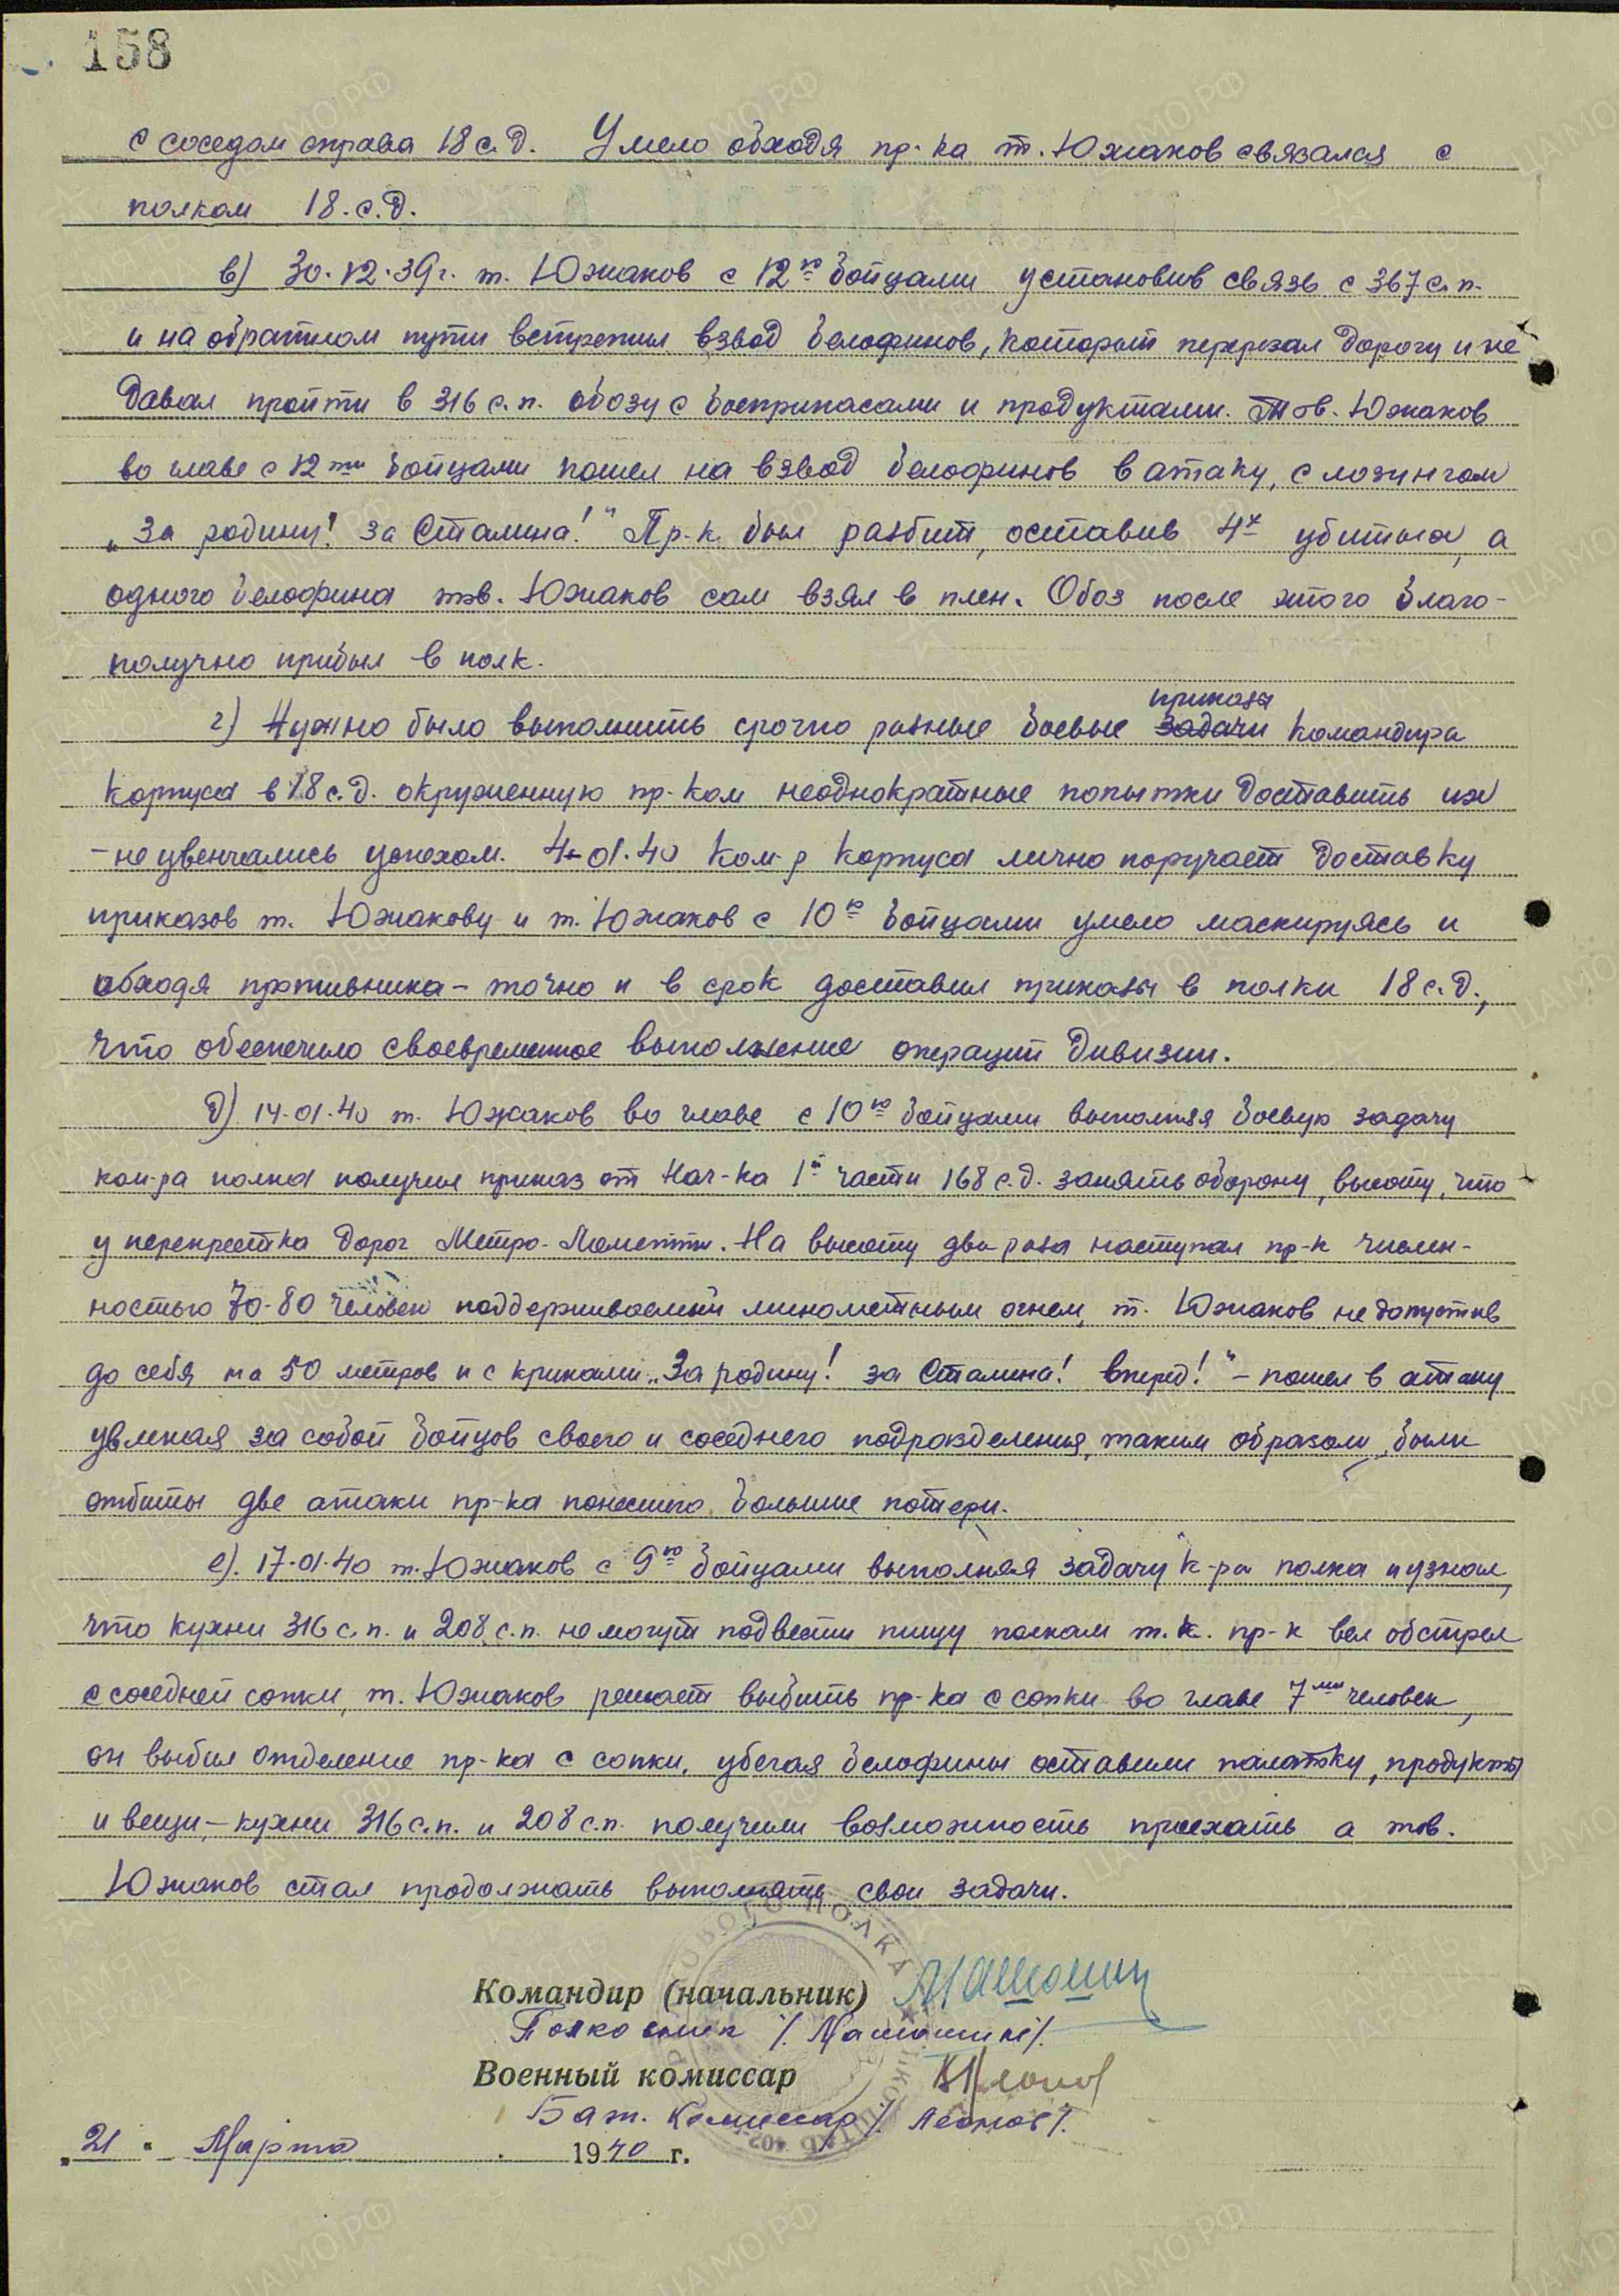 158
с соседом справа 18 с.д. Умело обходя пр-ка т. Южаков связался с
полком 18.с.д.
в) 30.12.39г. т. Южаков с 12ю бойцами установив связь с 367 с.п.
и на обратном пути встретил взвод белофинов, который перерезал дорогу и не
давал пройти в 316 с.п. обозу с боеприпасами и продуктами. Тов. Южаков
во главе с 12ти бойцами пошел на взвод белофинов в атаку, с лозунгом
„За родину! за Сталина!" Пр-к был разбит, оставив 4х убитых, а
одного белофина тов. Южаков сам взял в плен. Обоз после этого благо-
получно прибыл в полк.
приказы
г) Нужно было выполнить срочно разные боевые задачи командира
корпуса в 18 с.д. окруженную пр-ком неоднократные попытки доставить их
- не увенчались успехом. 4-01.40 Ком-р корпуса лично поручает доставку
приказов т. Южакову и т. Южаков с 10ю бойцами умело маскируясь и
обходя противника - точно и в срок доставил приказы в полки 18 с.д.,
что обеспечило своевременное выполнение операций дивизии.
д). 14-01-40 т. Южаков во главе с 10ю бойцами выполняя боевую задачу
ком-ра полка получил приказ от Нач-ка 1й части 168 с.д. занять оборону, высоту, что
у перекрестка дорог Метро-. На высоту два раза наступал пр-к числен-
ностью 70-80 человек поддерживаемый минометным огнем, т. Южаков не допустив
до себя на 50 метров и с криками „За родину! за Сталина! вперед!" - пошел в атаку
увлекая за собой бойцов своего и соседнего подразделения, таким образом были
отбиты две атаки пр-ка понесшего большие потери.
е). 17-01-40 т. Южаков с 9ю бойцами выполняя задачу к-ра полка и узнал,
что кухни 316 с.п. и 208 с.п. не могут подвести пищу полкам т.к. пр-к вел обстрел
с соседней сопки, т. Южаков решает выбить пр-ка с сопки во главе 7ми человек,
он выбил отделение пр-ка с сопки, убегая белофины оставили палатку, продукты
и вещи, - кухни 316 с.п. и 208 с.п. получили возможность проехать а тов.
Южаков стал продолжать выполнять свои задачи.
Командир (начальник)
Полковник /. Матошин/.
Военный комиссар
Бат. Комиссар /. Леонов/.
„21" Марта 1940 г.